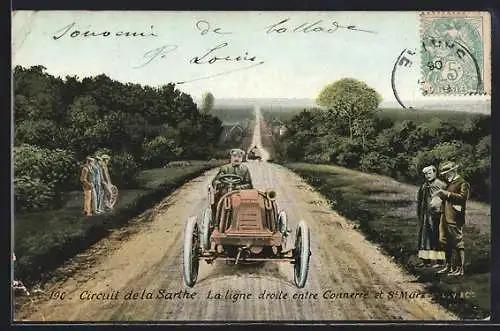 Souvenir de ballade
P. Louis
5
190 Circuit de la Sarthe La ligne droite entre Connerré et St Mars